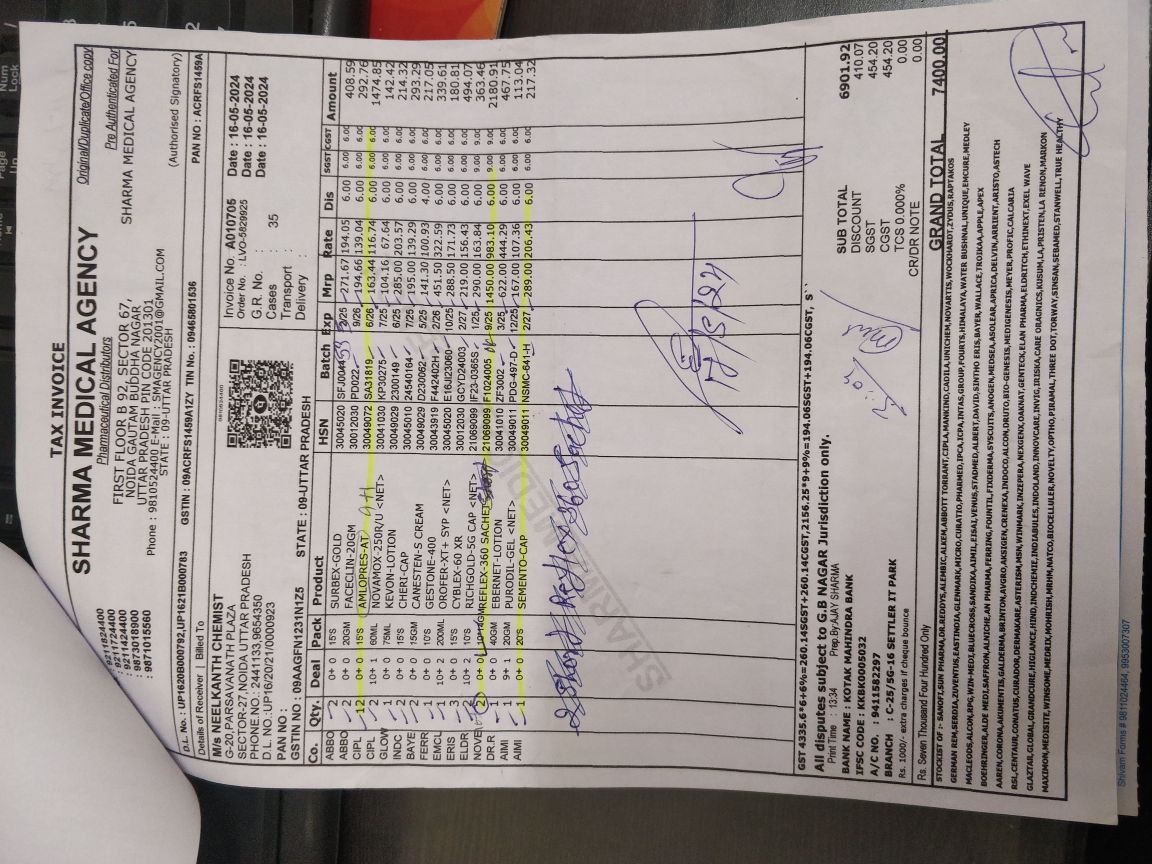 TAX INVOICE
Original/Duplicate/Office copy
SHARMA MEDICAL AGENCY
Pharmaceutical Distributors
FIRST FLOOR B 92, SECTOR 67,
NOIDA GAUTAM BUDDHA NAGAR
UTTAR PRADESH PIN CODE 201301
Phone : 9810524400 E-Mail : SMAGENCY2001@GMAIL.COM
STATE : 09-UTTAR PRADESH
: 9211824400
: 9211724400
: 9211424400
: 9873018900
: 9871015560
Pre Authenticated For
SHARMA MEDICAL AGENCY
(Authorised Signatory)
D.L. No. : UP1620B000792,UP1621B000783 GSTIN : 09ACRFS1459A1ZY TIN No. : 09465801536 PAN NO : ACRFS1459A
Details of Receiver | Billed To
M/s NEELKANTH CHEMIST
G-20,PARSAVNATH PLAZA
SECTOR-27,NOIDA UTTAR PRADESH
PHONE.NO.: 2441133,9654350
D.L. NO.: UP16/20/21/0000923
PAN NO :
GSTIN NO : 09AAGFN1231N1Z5 STATE : 09-UTTAR PRADESH
Invoice No. A010705 Date : 16-05-2024
Order No. : LVO-5829925 Date : 16-05-2024
G.R. No. : Date : 16-05-2024
Cases : 35
Transport :
Delivery :
Co. Qty. Deal Pack Product HSN Batch Exp Mrp Rate Dis SGST CGST Amount
ABBO 2 0+ 0 15'S SURBEX-GOLD 30045020 3/25 271.67 194.05 6.00 6.00 6.00 408.59
ABBO 2 0+ 0 20GM FACECLIN-20GM 30012030 PD022 9/26 194.66 139.04 6.00 6.00 6.00 292.76
CIPL 12 0+ 0 15'S AMLOPRES-AT 30049072 SA31819 6/26 163.44 116.74 6.00 6.00 6.00 1474.85
CIPL 2 10+ 1 30ML NOVAMOX-250R/U <NET> 30041030 KP30275 7/25 104.16 67.64 6.00 6.00 6.00 142.42
GLOW 1 0+ 0 75ML KEVON-LOTION 30049029 2300149 6/25 285.00 203.57 6.00 6.00 6.00 214.32
INDC 2 0+ 0 15'S CHERI-CAP 30045010 24540164 7/25 195.00 139.29 6.00 6.00 6.00 293.29
BAYE 2 0+ 0 15GM CANESTEN-S CREAM 30049029 D230062 5/25 141.30 100.93 4.00 6.00 6.00 217.05
FERR 1 0+ 0 10'S GESTONE-400 30043919 F44402H 2/26 451.50 322.59 6.00 6.00 6.00 339.61
EMCL 1 10+ 2 200ML OROFER-XT+ SYP <NET> 30045020 E16JI23060 10/25 288.50 171.73 6.00 6.00 6.00 180.81
ERIS 3 0+ 0 10'S CYBLEX-60 XR 30012030 GCYD24003 2/27 219.00 156.43 6.00 6.00 6.00 494.07
ELDR 2 10+ 2 10'S RICHGOLD-5G CAP <NET> 21069099 IF23-0365S 1/25 290.00 163.84 6.00 9.00 9.00 363.46
NOVE 2 0+ 0 REFLEX-360 SACHET 21069099 F1024005 9/25 1450.00 983.10 6.00 9.00 9.00 2180.91
DR.R 1 0+ 0 40GM EBERNET-LOTION 30041010 ZF3002 3/25 622.00 444.29 6.00 6.00 6.00 467.75
AIMI 1 9+ 1 20GM PURODIL-GEL <NET> 30049011 PDG-497-D 12/25 167.00 107.36 6.00 6.00 6.00 113.04
AIMI 1 0+ 0 20'S SEMENTO-CAP 30049011 NSMC-641-H 2/27 289.00 206.43 6.00 6.00 6.00 217.32
2 Short Reflex 360 Sachet
17/5/24
SHARMA MEDI
GST 4335.6*6+6%=260.14SGST+260.14CGST,2156.25*9+9%=194.06SGST+194.06CGST,
All disputes subject to G.B NAGAR Jurisdiction only.
Print Time : 13:34 Prep.By:AJAY SHARMA
BANK NAME : KOTAK MAHINDRA BANK
IFSC CODE : KKBK0005032
A/C NO. : 9411582297
BRANCH : C-25/5G-16 SETTLER IT PARK
Rs. 1000/- extra charges if cheque bounce
SUB TOTAL 6901.92
DISCOUNT 410.07
SGST 454.20
CGST 454.20
TCS 0.000% 0.00
CR/DR NOTE 0.00
Rs. Seven Thousand Four Hundred Only
GRAND TOTAL 7400.00
STOCKIST OF :- SANOFI,SUN PHARMA,DR.REDDYS,ALEMBIC,ALKEM,ABBOTT TORRANT,CIPLA,MANKIND,CADILA,UNICHEM,NOVARTIS,WOCKHARDT,ZYDUS,RAPTAKOS
Shivam Forms # 9811024464, 9953007307